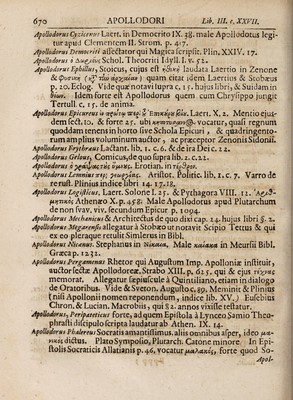 670 APOLLODORI Lib. III. c. XXVII.
Apollodorus Cyzicenus Laert. in Democrito IX. 38. male Apollodotus legi-
tur apud Clementem II. Strom. p. 417.
Apollodorus Democriti assectator qui Magica scripsit. Plin. XXIV. 17.
Apollodorus Schol. Theocriti I Idyll. I. v. 52.
Apollodorus Ephillus, Stoicus, cujus est laudata Laertio in Zenone
& quam citat idem Laertius & Stobæus
p. 20. Eclog. Vide quæ notavi supra c. 15. hujus libri, & Suidam in
Idem forte est Apollodorus quem cum Chrysippo jungit
Tertull. c. 15. de anima.
Apollodorus Epicureus Laert. X. 2. Mentio ejus-
dem sect. 10. & forte 12. ubi vocatur, quasi regnum
quoddam tenens in horto sive Schola Epicuri, & quadringento-
rum amplius voluminum auctor, ac præceptor Zenonis Sidonii.
Apollodorus Erythræus Lactant. lib. 1. c. 6. & de ira Dei c. 22.
Apollodorus Gelous, Comicus, de quo supra lib. 2. c. 22.
Apollodorus Erotian. in
Apollodorus Lemnius Aristot. Politic. lib. 1. c. 7. Varro de
re rust. Plinius indice libri 14. 17. 18.
Apollodorus Logisticus, Laert. Solone I. 25. & Pythagora VIII. 12.
Athenæo X. p. 458. Male Apollodotus apud Plutarchum
de non svav. viv. secundum Epicur. p. 1094.
Apollodorus Mechanicus & Architectus de quo dixi cap. 24. hujus libri §. 2.
Apollodorus Megarensis allegatur à Stobæo ut notavit Scipio Tettus & qui
ex eo pleraque retulit Simlerus in Bibl.
Apollodorus Nicænus. Stephanus in Male in Meursii Bibl.
Græca p. 1232.
Apollodorus Pergamenus Rhetor qui Augustum Imp. Apolloniæ instituit,
auctor sectæ Apollodoreæ. Strabo XIII. p. 625. qui & ejus
memorat. Allegatur sæpiuscule à Quintiliano, etiam in dialogo
de Oratoribus. Vide & Sveton. Augusto c. 89. Meminit & Plinius
(nisi Apollonii nomen reponendum, indice lib. XV.) Eusebius
Chron. & Lucian. Macrobiis, qui 82. annos vixisse testatur.
Apollodorus, Peripateticus forte, ad quem Epistola à Lynceo Samio Theo-
phrasti discipulo scripta laudatur ab Athen. IX. 14.
Apollodorus Phalereus Socratis amantissimus. aliis omnibus asper, ideo
dictus. Plato Symposio, Plutarch. Catone minore. In Epi-
stolis Socraticis Allatianis p. 46. vocatur forte quod So-
Apol-